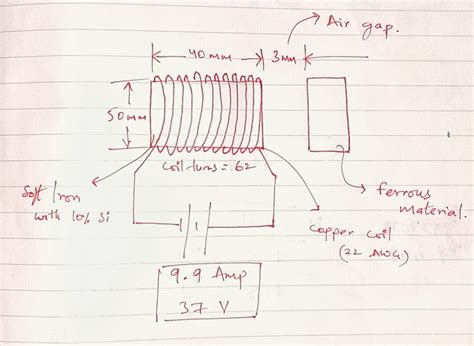 Air gap.
40mm
3mm
50mm
Coil turns = 62
Soft Iron
with 10% Si
ferrous
material.
Copper coil
(22 AWG)
9.9 Amp
37 V